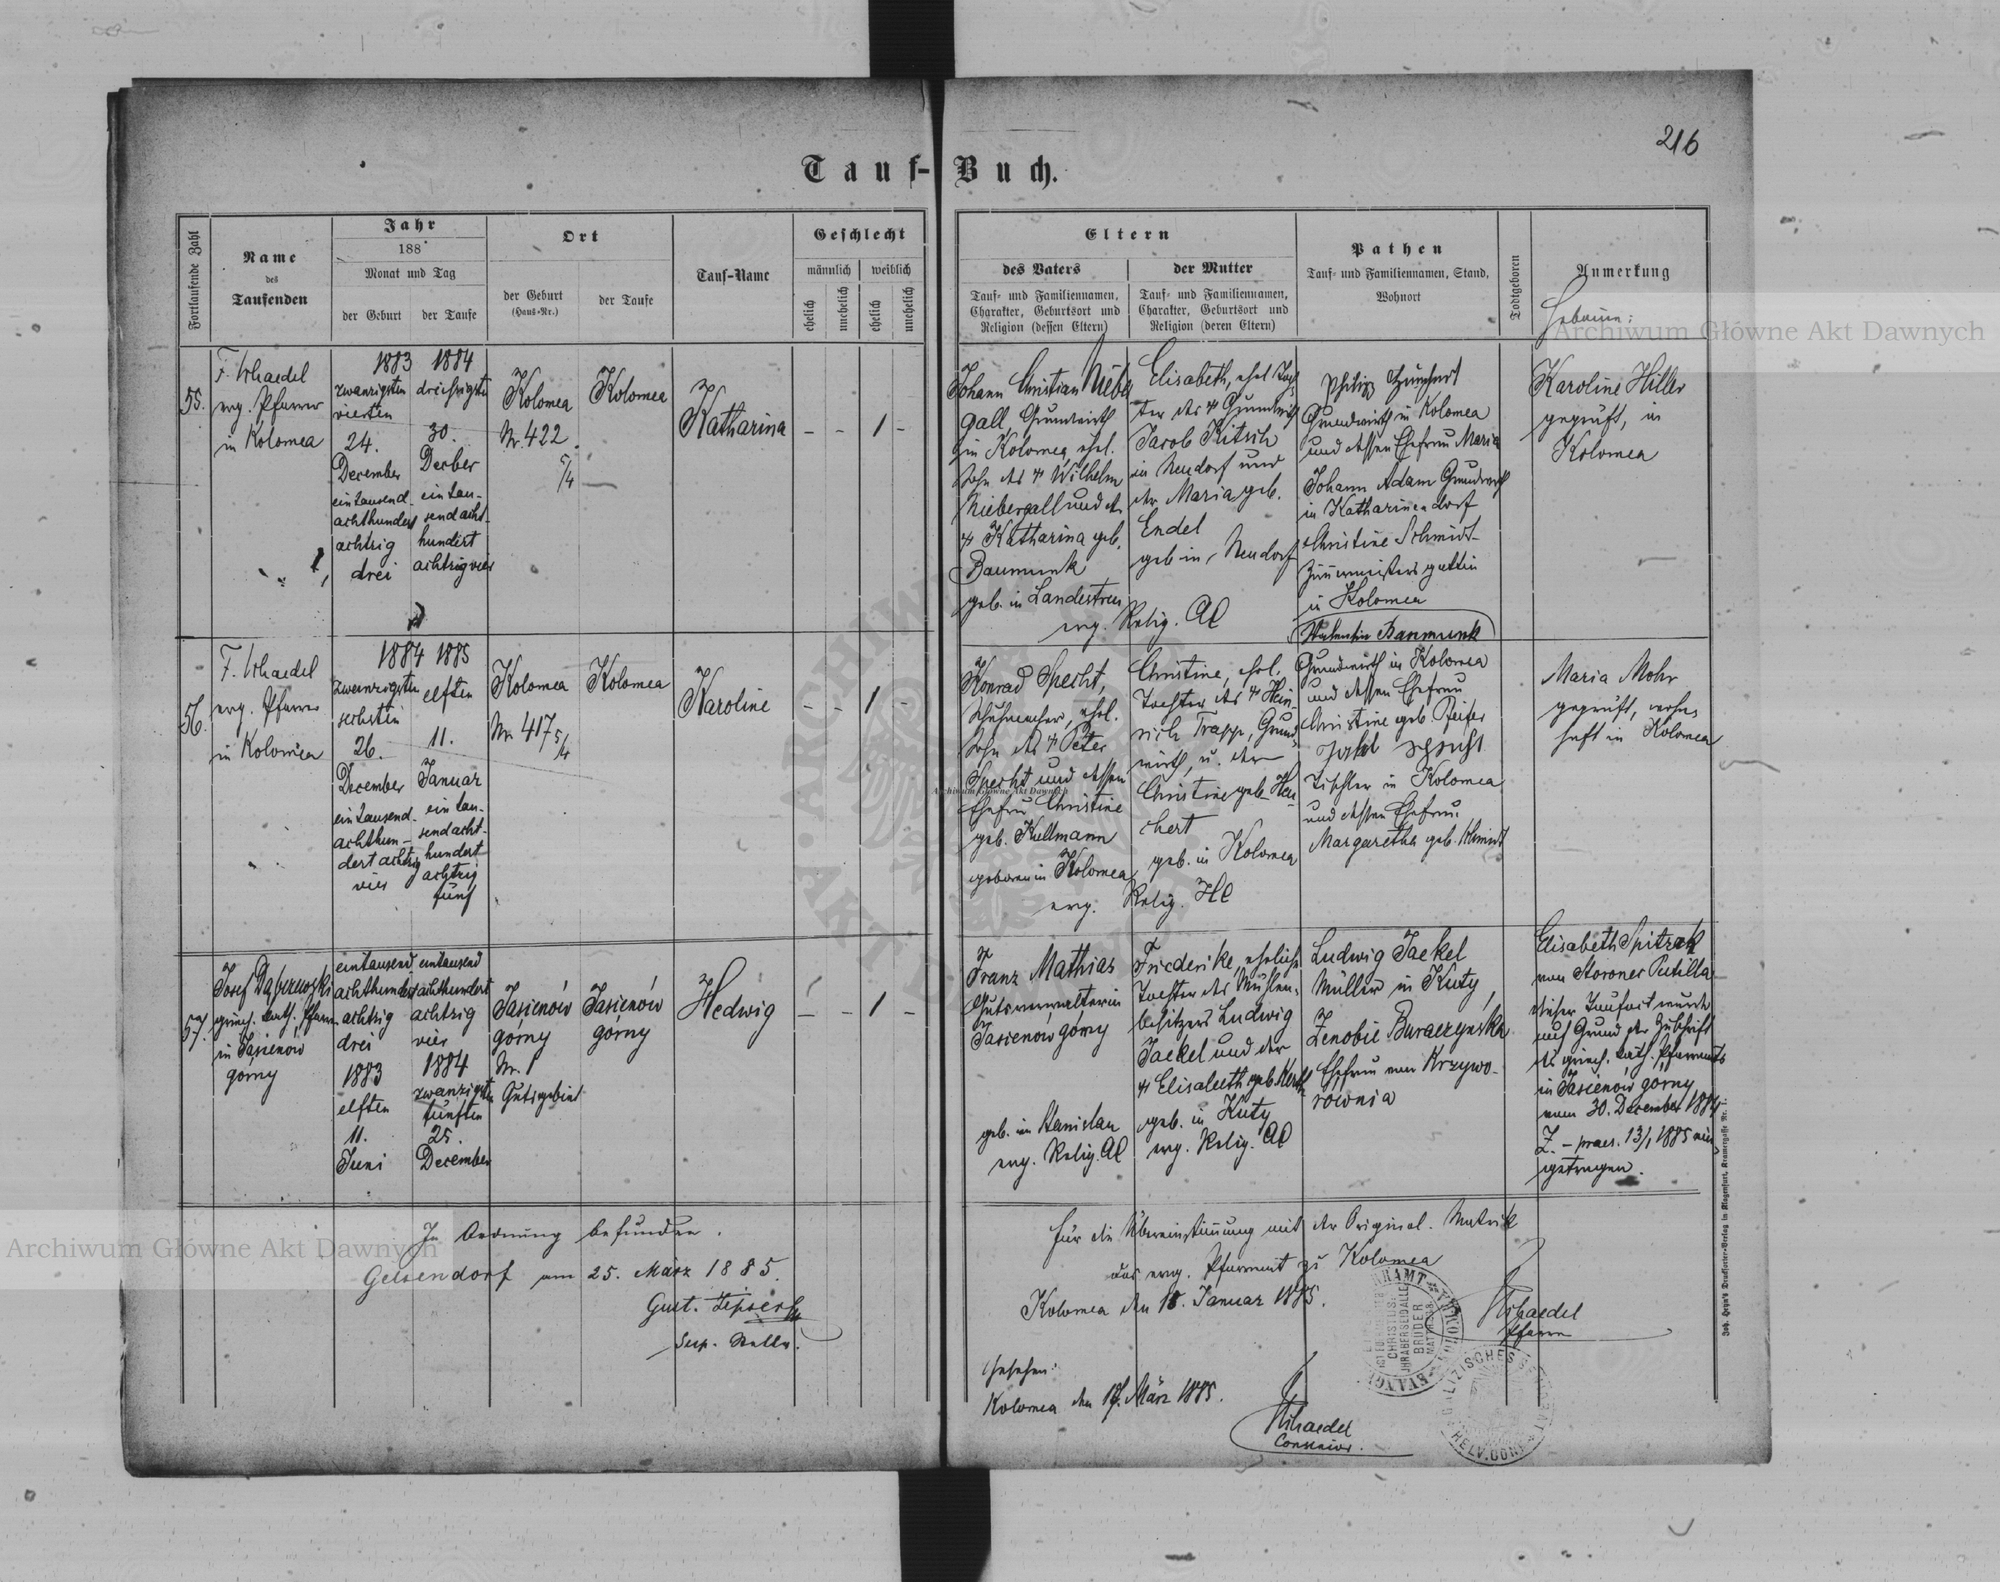 216
Tauf-Buch.
Fortlaufende Zahl
Name
des
Taufenden
Jahr
188
Monat und Tag
der Geburt
der Taufe
Ort
der Geburt
(Haus-Nr.)
der Taufe
Tauf-Name
Geschlecht
männlich
weiblich
ehelich
unehelich
ehelich
unehelich
Eltern
des Vaters
Tauf- und Familiennamen,
Charakter, Geburtsort und
Religion (dessen Eltern)
der Mutter
Tauf- und Familiennamen,
Charakter, Geburtsort und
Religion (deren Eltern)
Pathen
Tauf- und Familiennamen, Stand,
Wohnort
Todtgeboren
Anmerkung
55.
evg. Pfarrer
in Kolomea
1883
zwanzigsten
vierten
24.
December
eintausend
achthundert
achtzig
drei
1884
dreißigsten
30.
Decber
ein tau-
sendacht-
hundert
achtzigvier
Kolomea
Nr. 422
5/4
Kolomea
Katharina
– – 1 –
Johann Christian Nieber
gall, Grundwirth
in Kolomea, ehel.
Sohn des † Wilhelm
Niebergall und der
† Katharina geb.
Baumunk
geb. in Landestreu
Elisabeth, ehel. Toch-
ter des † Grundwirth
Jacob Kitsch
in Neudorf und
der Maria geb.
Endel
geb. in Neudorf
evg. Relig. AC
Philipp
Grundwirth in Kolomea
und dessen Ehefrau Maria
Johann Adam Grundwirth
in Katharinendorf
Christine Schmidt
Zimmermeistersgattin
in Kolomea
Karoline Hiller
geprüft, in
Kolomea
56.
evg. Pfarrer
in Kolomea
1884
zwanzigsten
sechsten
26.
December
eintausend
achthun-
dert achtzig
vier
1885
elften
11.
Januar
ein tau-
sendacht-
hundert
achtzig
fünf
Kolomea
Nr. 417
5/4
Kolomea
Karoline
– – 1 –
Konrad Specht,
Schuhmacher, ehel.
Sohn des † Peter
Specht und dessen
Ehefrau Christine
geb. Kullmann
geboren in Kolomea
Christine, ehel.
Tochter des † Hein-
rich Trapp, Grund-
wirth, u. der
Christine geb. Heu-
chert
geb. in Kolomea
evg. Relig. HC
Baumunk
Grundwirth in Kolomea
und dessen Ehefrau
Christine geb. Peifer
Tischler in Kolomea
und dessen Ehefrau
Margaretha geb. Schmidt
Maria Mohr
geprüft, wohn-
haft in Kolomea
57.
Josef
griech. kath. Pfarrer
in Jasienów
górny
eintausend
achthundert
achtzig
drei
1883
elften
11.
Juni
eintausend
achthundert
achtzig
vier
1884
zwanzigsten
fünften
25.
December
Jasienów
górny
Nr. 1
Gutsgebiet
Jasienów
górny
Hedwig
– – 1 –
Franz Mathias
Gutsverwalter in
Jasienów górny
geb. in Stanislau
evg. Relig. AC
Friederike, eheliche
Tochter des Mühlen-
besitzers Ludwig
Jaekel und der
† Elisabeth geb.
geb. in Kuty
evg. Relig. AC
Ludwig Jaekel
Müller in Kuty,
Zenobie Buraczyńska
Ehefrau von Krzywo-
równia
Elisabeth
von Storonez Putilla
dieser Taufact wurde
auf Grund der Zuschrift
des griech. kath. Pfarramts
in Jasienów górny
vom 30. December 1884
Z. – praes. 13/1 1885 ein
getragen.
In Ordnung befunden.
Gelsendorf am 25. März 1885.
Sup. Stellv.
Für die Übereinstimmung mit der Original-Matrik
das evg. Pfarramt zu Kolomea
Kolomea den 18. Januar 1885.
Pfarrer
Gesehen:
Kolomea den 17. März 1885.
Consenior.
Archiwum Główne Akt Dawnych
Archiwum Główne Akt Dawnych
Archiwum Główne Akt Dawnych